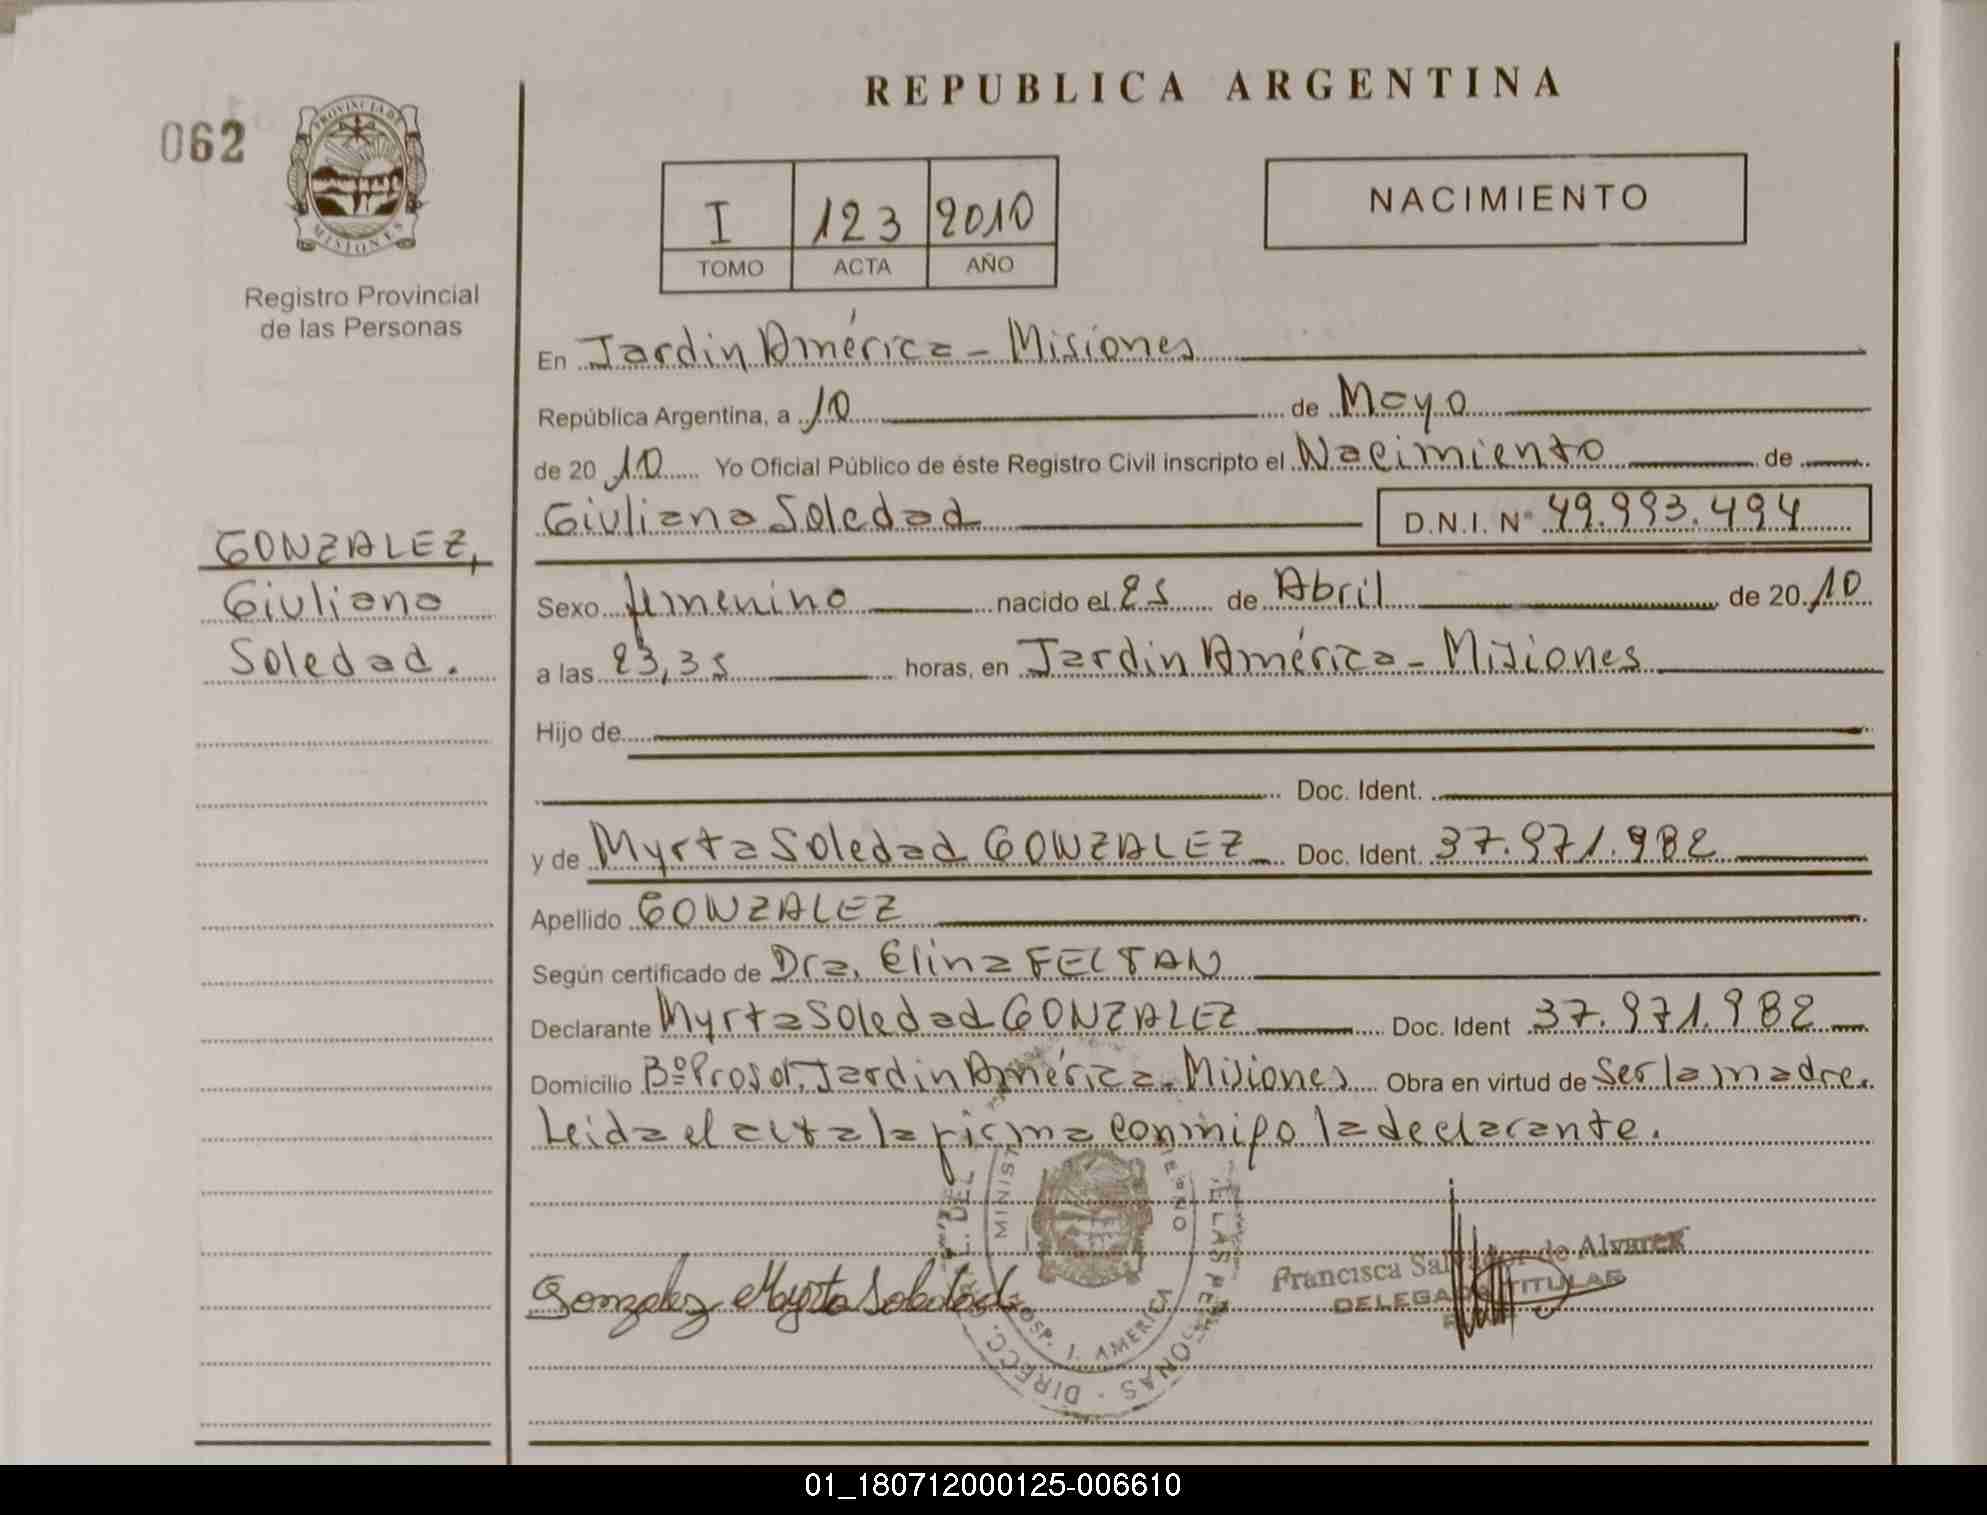 REPUBLICA ARGENTINA
062
PROVINCIA DE
MISIONES
Registro Provincial
de las Personas
I 123 2010
TOMO ACTA AÑO
NACIMIENTO
GONZALEZ,
Giuliana
Soledad.
En Jardin América - Misiones
República Argentina, a 10 de Mayo
de 20 10 Yo Oficial Público de éste Registro Civil inscripto el Nacimiento de
Giuliana Soledad D.N.I. Nº 49.993.494
Sexo femenino nacido el 25 de Abril de 20 10
a las 23,35 horas, en Jardin América - Misiones
Hijo de
Doc. Ident.
y de Myrta Soledad GONZALEZ Doc. Ident. 37.971.982
Apellido GONZALEZ
Según certificado de Dra. Elina FELTAN
Declarante Myrta Soledad GONZALEZ Doc. Ident 37.971.982
Domicilio Bº Prosol, Jardin América - Misiones Obra en virtud de ser la madre.
Leida el acta la firma conmigo la declarante.
Gonzalez Myrta Soledad
HOSP. J. AMERICA
DIRECC. DE LAS PERSONAS
Francisca Salvador de Alvarez
DELEGADA TITULAR
01_180712000125-006610